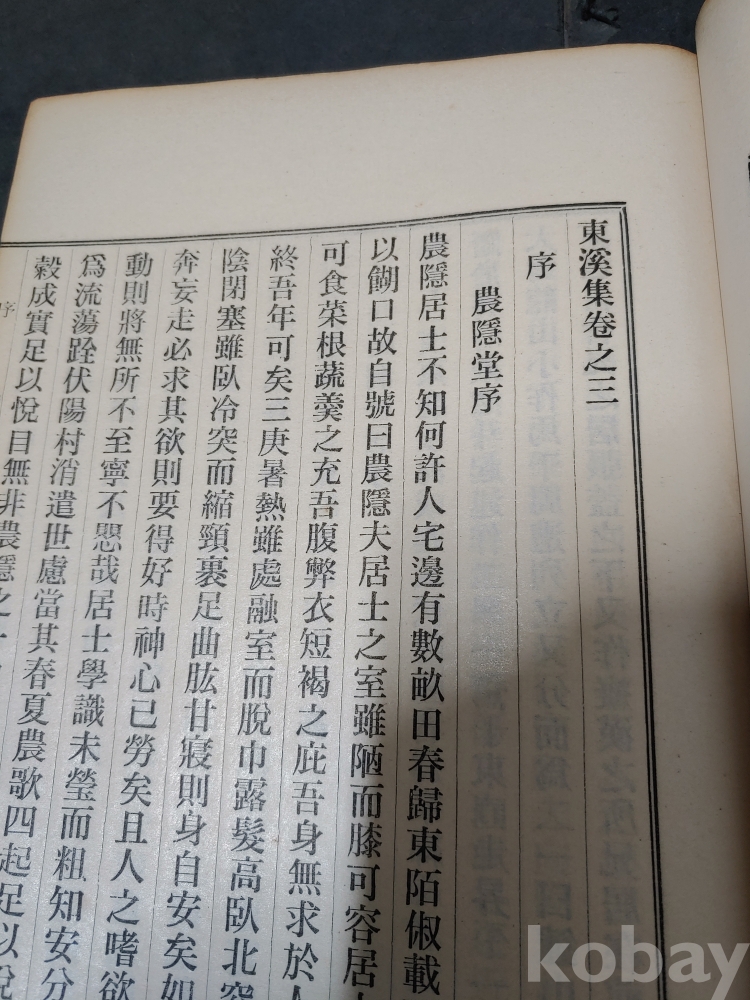 東溪集卷之三
序
農隱堂序
農隱居士不知何許人宅邊有數畝田春歸東陌俶載
以餬口故自號曰農隱夫居士之室雖陋而膝可容居
可食菜根蔬羹之充吾腹弊衣短褐之庇吾身無求於人
終吾年可矣三庚暑熱雖處融室而脫巾露髮高臥北窓
陰閉塞雖臥冷突而縮頸裹足曲肱甘寢則身自安矣如
奔妄走必求其欲則要得好時神心已勞矣且人之嗜欲
動則將無所不至寧不愳哉居士學識未瑩而粗知安分
爲流蕩跧伏陽村消遣世慮當其春夏農歌四起足以悅
穀成實足以悅目無非農隱之
序
kobay